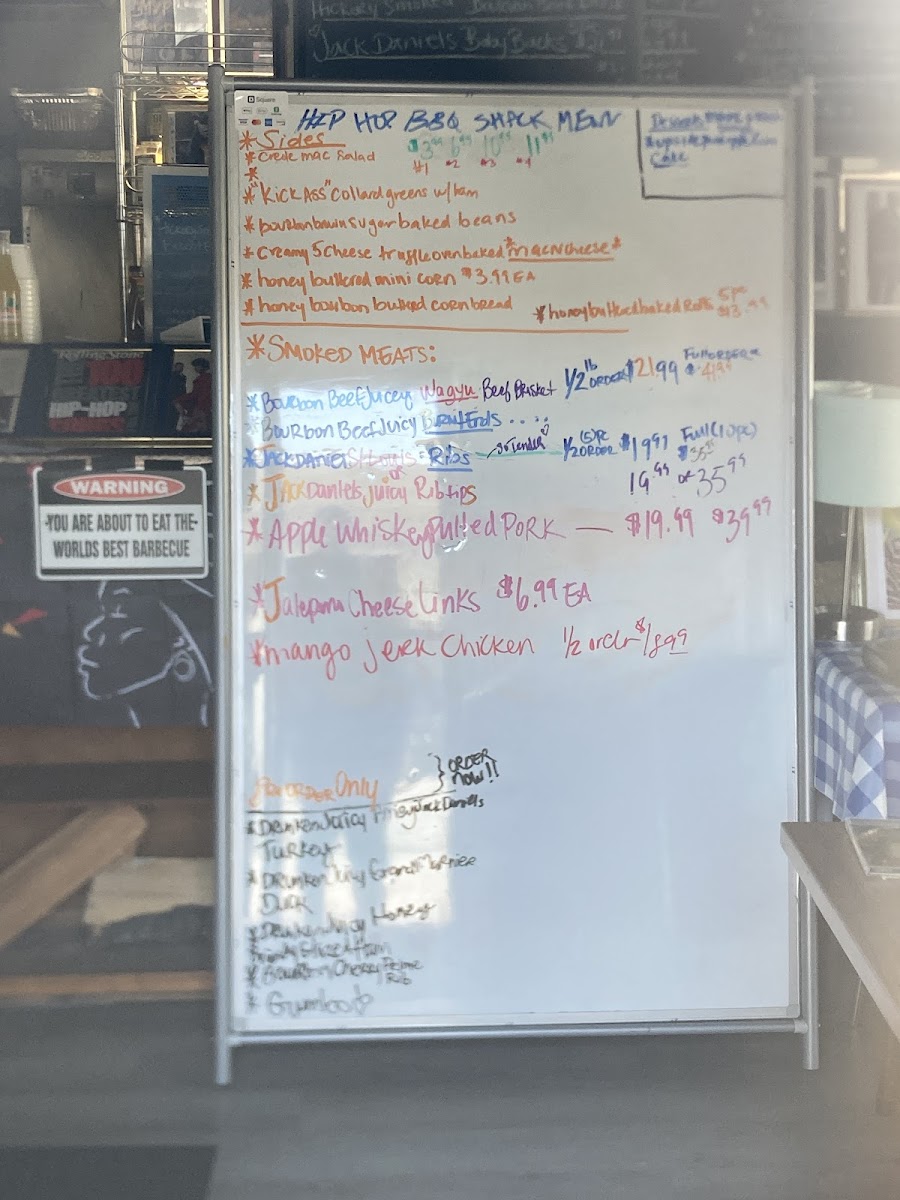 Hickory Smoked
Jack Daniels Baby Backs
Square
HIP HOP BBQ SHACK MENU
*Sides
$3.99 6.99 10.99 11.99
#1 #2 #3 #4
* Creole mac Salad
*
*"KickAss" Collard greens w/ham
*bourbon brown sugar baked beans
*Creamy 5 cheese truffle oven baked *macNcheese*
*honey buttered mini corn $3.99 EA
*honey bourbon buttered cornbread
*honey buttered baked Rolls 5pc $3.99
Desserts
Cake
*SMOKED MEATS:
*Bourbon Beef Juicy Wagyu Beef Brisket 1/2 lb ORDER $21.99 Full ORDER
*BOURBON Beef Juicy Burnt Ends ....
*JACK DANIELS Ribs so tender 1/2 ORDER (5)PC $19.97 Full (10pc)
or
*JACK Daniels Juicy Rib tips 19.99 or 35.99
*Apple Whiskey Pulled PORK — $19.99 $39.99
*Jalepano Cheese Links $6.99 EA
*mango jerk Chicken 1/2 order $18.99
ORDER Only } ORDER NOW!!
*Drunken Juicy Jack Daniels
Turkey
*Drunken Juicy Grand Marnier
Duck
*Drunken Juicy Honey
Ham
*Bourbon Cherry Prime
Rib
*Gumbo
WARNING
YOU ARE ABOUT TO EAT THE
WORLDS BEST BARBECUE
Rolling Stone
HIP-HOP